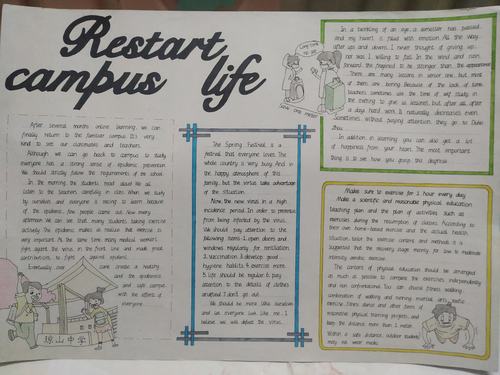 Restart
campus life
After several months online learning, we can
finally return to the familiar campus. It's very
kind to see our classmates and teachers.
Although we can go back to campus to study,
everyone has a strong sense of epidemic prevention.
We should strictly follow the requirements of the school.
In the morning, the students read aloud. We all
listen to the teachers carefully in class. When we study
by ourselves and everyone is racing to learn because
of the epidemic, few people came out. Now many
afternoon. We can see that many students taking exercise
actively. The epidemic makes us realise that exercise is
very important. At the same time, many medical workers
fight against the virus in the front line and made great
contributions to fight against epidemic.
Eventually, over
come create a healthy
and the epidemic
and safe campus
with the efforts of
everyone
琼山中学
The Spring Festival is a
festival that everyone loves. The
whole country is very busy. And in
the happy atmosphere of this
family, but the virus take advantage
of the situation.
Now, the new virus in a high
incidence period. In order to prevent
from being infected by the virus.
We should pay attention to the
following items: 1. open doors and
windows regularly for ventilation.
2. vaccination. 3. develop good
hygiene habits. 4. exercise more.
5. life should be regular. 6. pay
attention to the details of clothes
and food. 7. don't go out.
We should be more like ourselves
and let everyone look like me. I
believe we will defeat the virus.
Long time no see
In a twinkling of an eye, a semester has passed,
and my heart is filled with emotion. All the way
after ups and downs, I never thought of giving up,
nor was I willing to fail. In the wind and rain,
forward the prepared to be stronger than the appearance.
There are many lessons in senior one, but most
of them are boring. Because of the lack of time,
teachers sometimes use the time of self study in
the evening to give us lessons, but after all, after
a day's hard work, it naturally decreases even
Sometimes without paying attention, they go to Duke
Zhou.
In addition to learning, you can also get a lot
of happiness from your heart. The most important
thing is to see how you grasp the degree.
Make sure to exercise for 1 hour every day.
Make a scientific and reasonable physical education
teaching plan and the plan of activities such as
exercises during the resumption of classes. According to
their own home-based exercise and the actual health
situation, tailor the exercise content and methods, it is
suggested that the recovery stage mainly for low to moderate
intensity aerobic exercise.
The contents of physical education should be arranged
as much as possible to compare the exercises independently
and non confrontational. You can choose fitness walking,
combination of walking and running, martial arts, aerobic
exercise, fitness dance and other forms of
recreative physical training projects, and
keep the distance more than 1 meter.
Within a safe distance, outdoor students
may no wear masks.